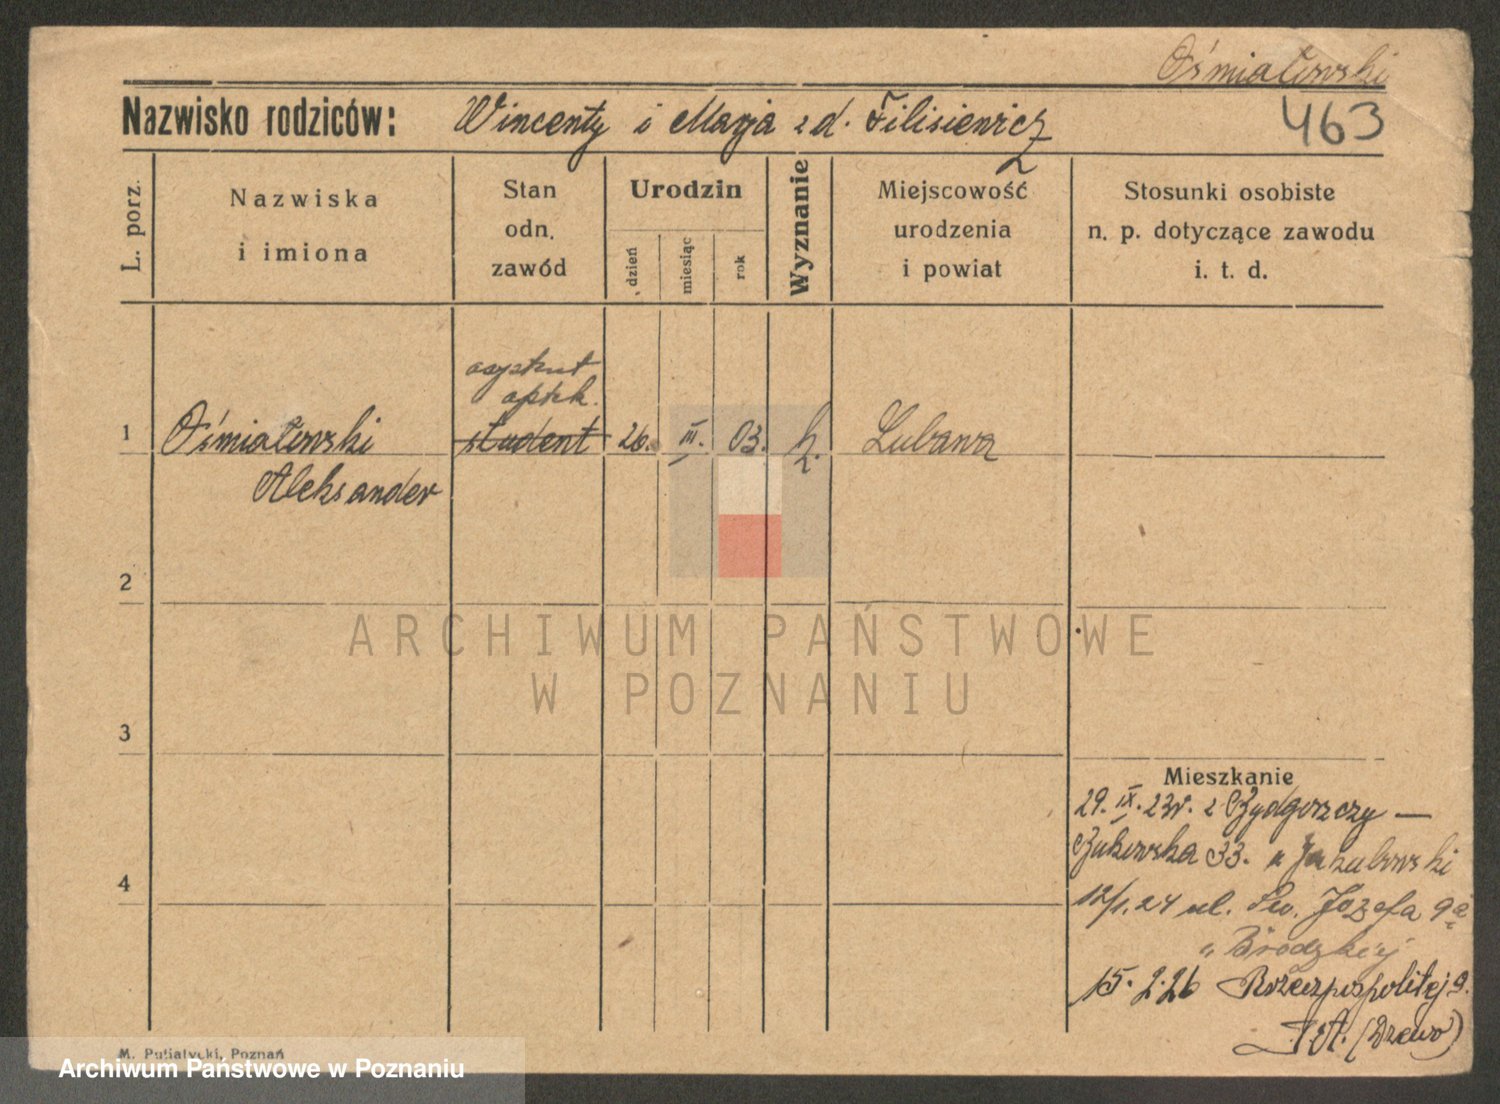 Ośmiałowski
Nazwisko rodziców: Wincenty i Marja z d. Filisiewicz
463
L. porz.
Nazwiska
i imiona
Stan
odn.
zawód
Urodzin
dzień
miesiąc
rok
Wyznanie
Miejscowość
urodzenia
i powiat
Stosunki osobiste
n. p. dotyczące zawodu
i. t. d.
asystent
aptek.
1 Ośmiałowski student 26. III. 03. k. Lubawa
Aleksander
2
ARCHIWUM PAŃSTWOWE
W POZNANIU
3
Mieszkanie
29. IX. 23r. z Bydgoszczy —
Bukowska 33. u Jakubowski
4
12/1.24 ul. Św. Józefa 9a
u Brodzkiej
15.2.26 Rzeczpospolitej 9.
(Drewo)
M. Putiatycki, Poznań
Archiwum Państwowe w Poznaniu